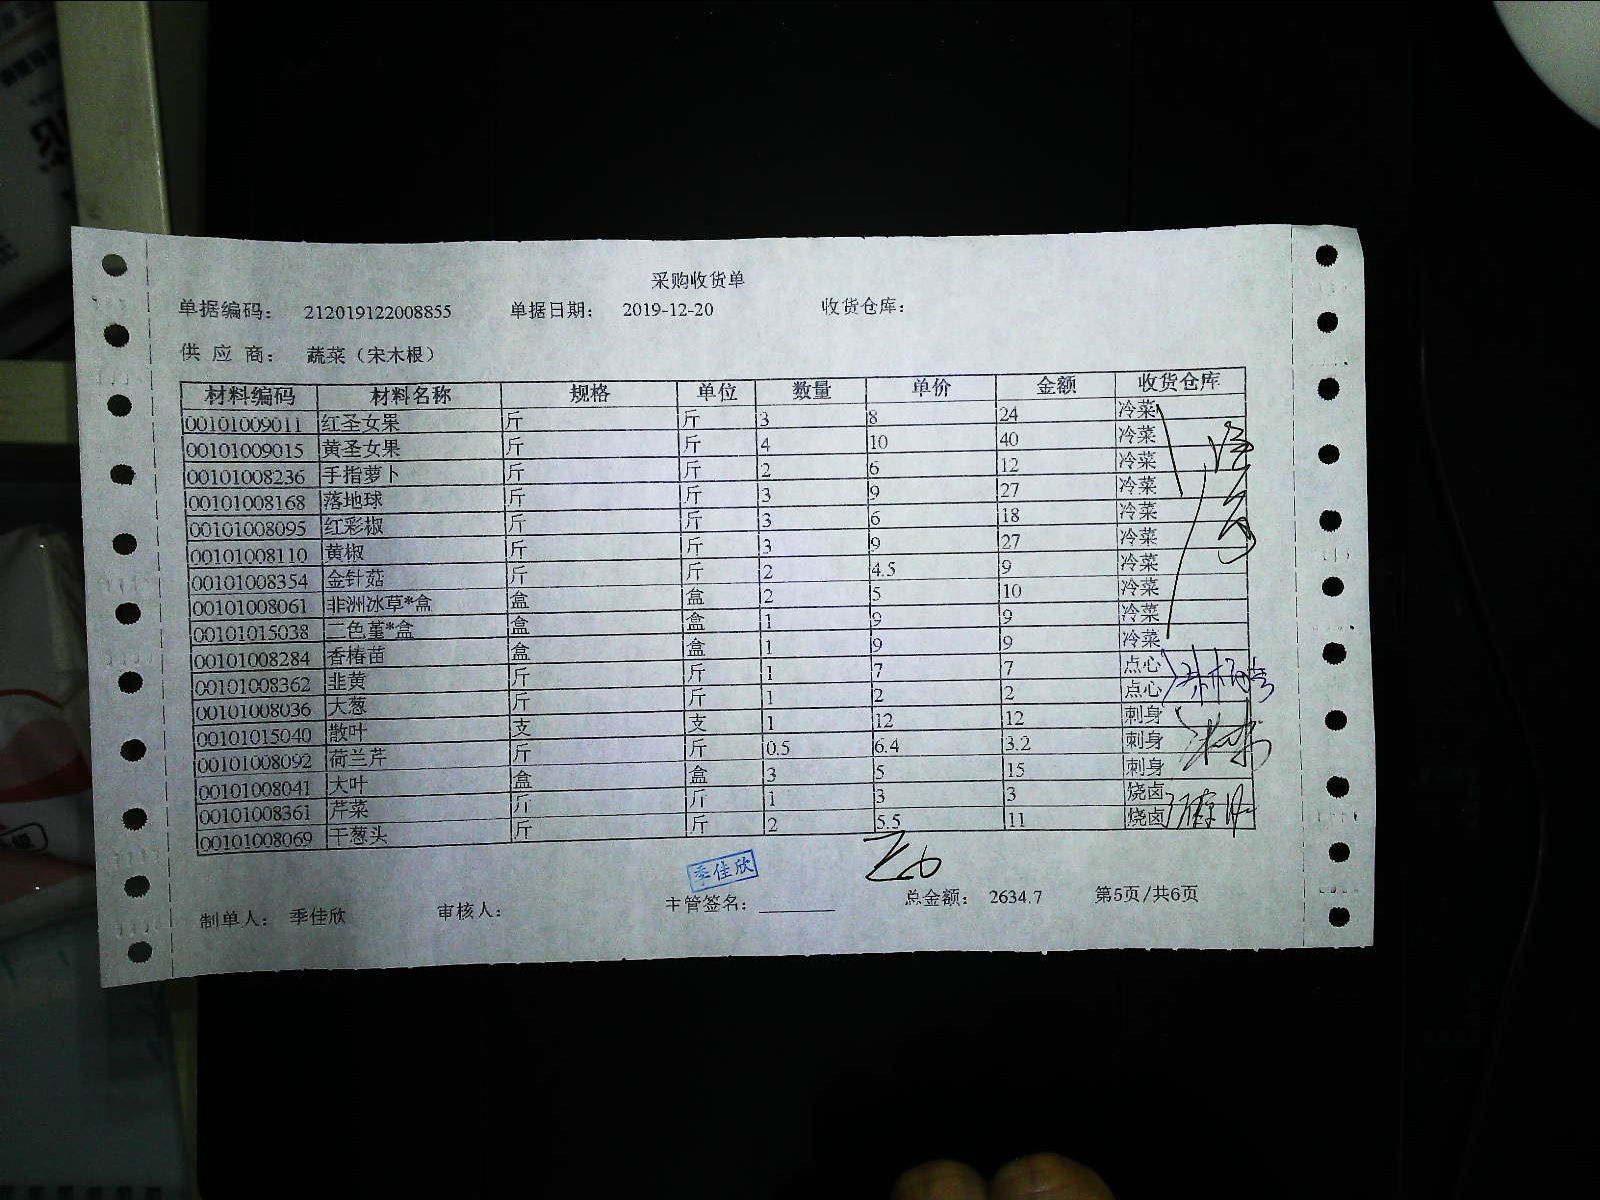 采购收货单
单据编码： 212019122008855 单据日期： 2019-12-20 收货仓库：
供 应 商： 蔬菜（宋木根）
材料编码 材料名称 规格 单位 数量 单价 金额 收货仓库
00101009011 红圣女果 斤 斤 3 8 24 冷菜
00101009015 黄圣女果 斤 斤 4 10 40 冷菜
00101008236 手指萝卜 斤 斤 2 6 12 冷菜
00101008168 落地球 斤 斤 3 9 27 冷菜
00101008095 红彩椒 斤 斤 3 6 18 冷菜
00101008110 黄椒 斤 斤 3 9 27 冷菜
00101008354 金针菇 斤 斤 2 4.5 9 冷菜
00101008061 非洲冰草*盒 盒 盒 2 5 10 冷菜
00101015038 三色堇*盒 盒 盒 1 9 9 冷菜
00101008284 香椿苗 盒 盒 1 9 9 冷菜
00101008362 韭黄 斤 斤 1 7 7 点心
00101008036 大葱 斤 斤 1 2 2 点心
00101015040 散叶 支 支 1 12 12 刺身
00101008092 荷兰芹 斤 斤 0.5 6.4 3.2 刺身
00101008041 大叶 盒 盒 3 5 15 刺身
00101008361 芹菜 斤 斤 1 3 3 烧卤
00101008069 干葱头 斤 斤 2 5.5 11 烧卤
季佳欣
制单人： 季佳欣 审核人： 主管签名： 总金额： 2634.7 第5页/共6页